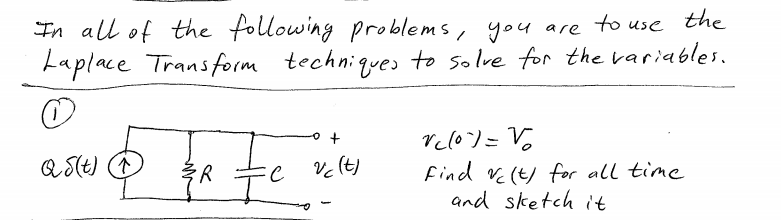 In all of the following problems, you are to use the
Laplace Transform techniques to solve for the variables.
①
Qδ(t) R C + v_c(t) - v_c(0⁻) = V₀
Find v_c(t) for all time
and sketch it